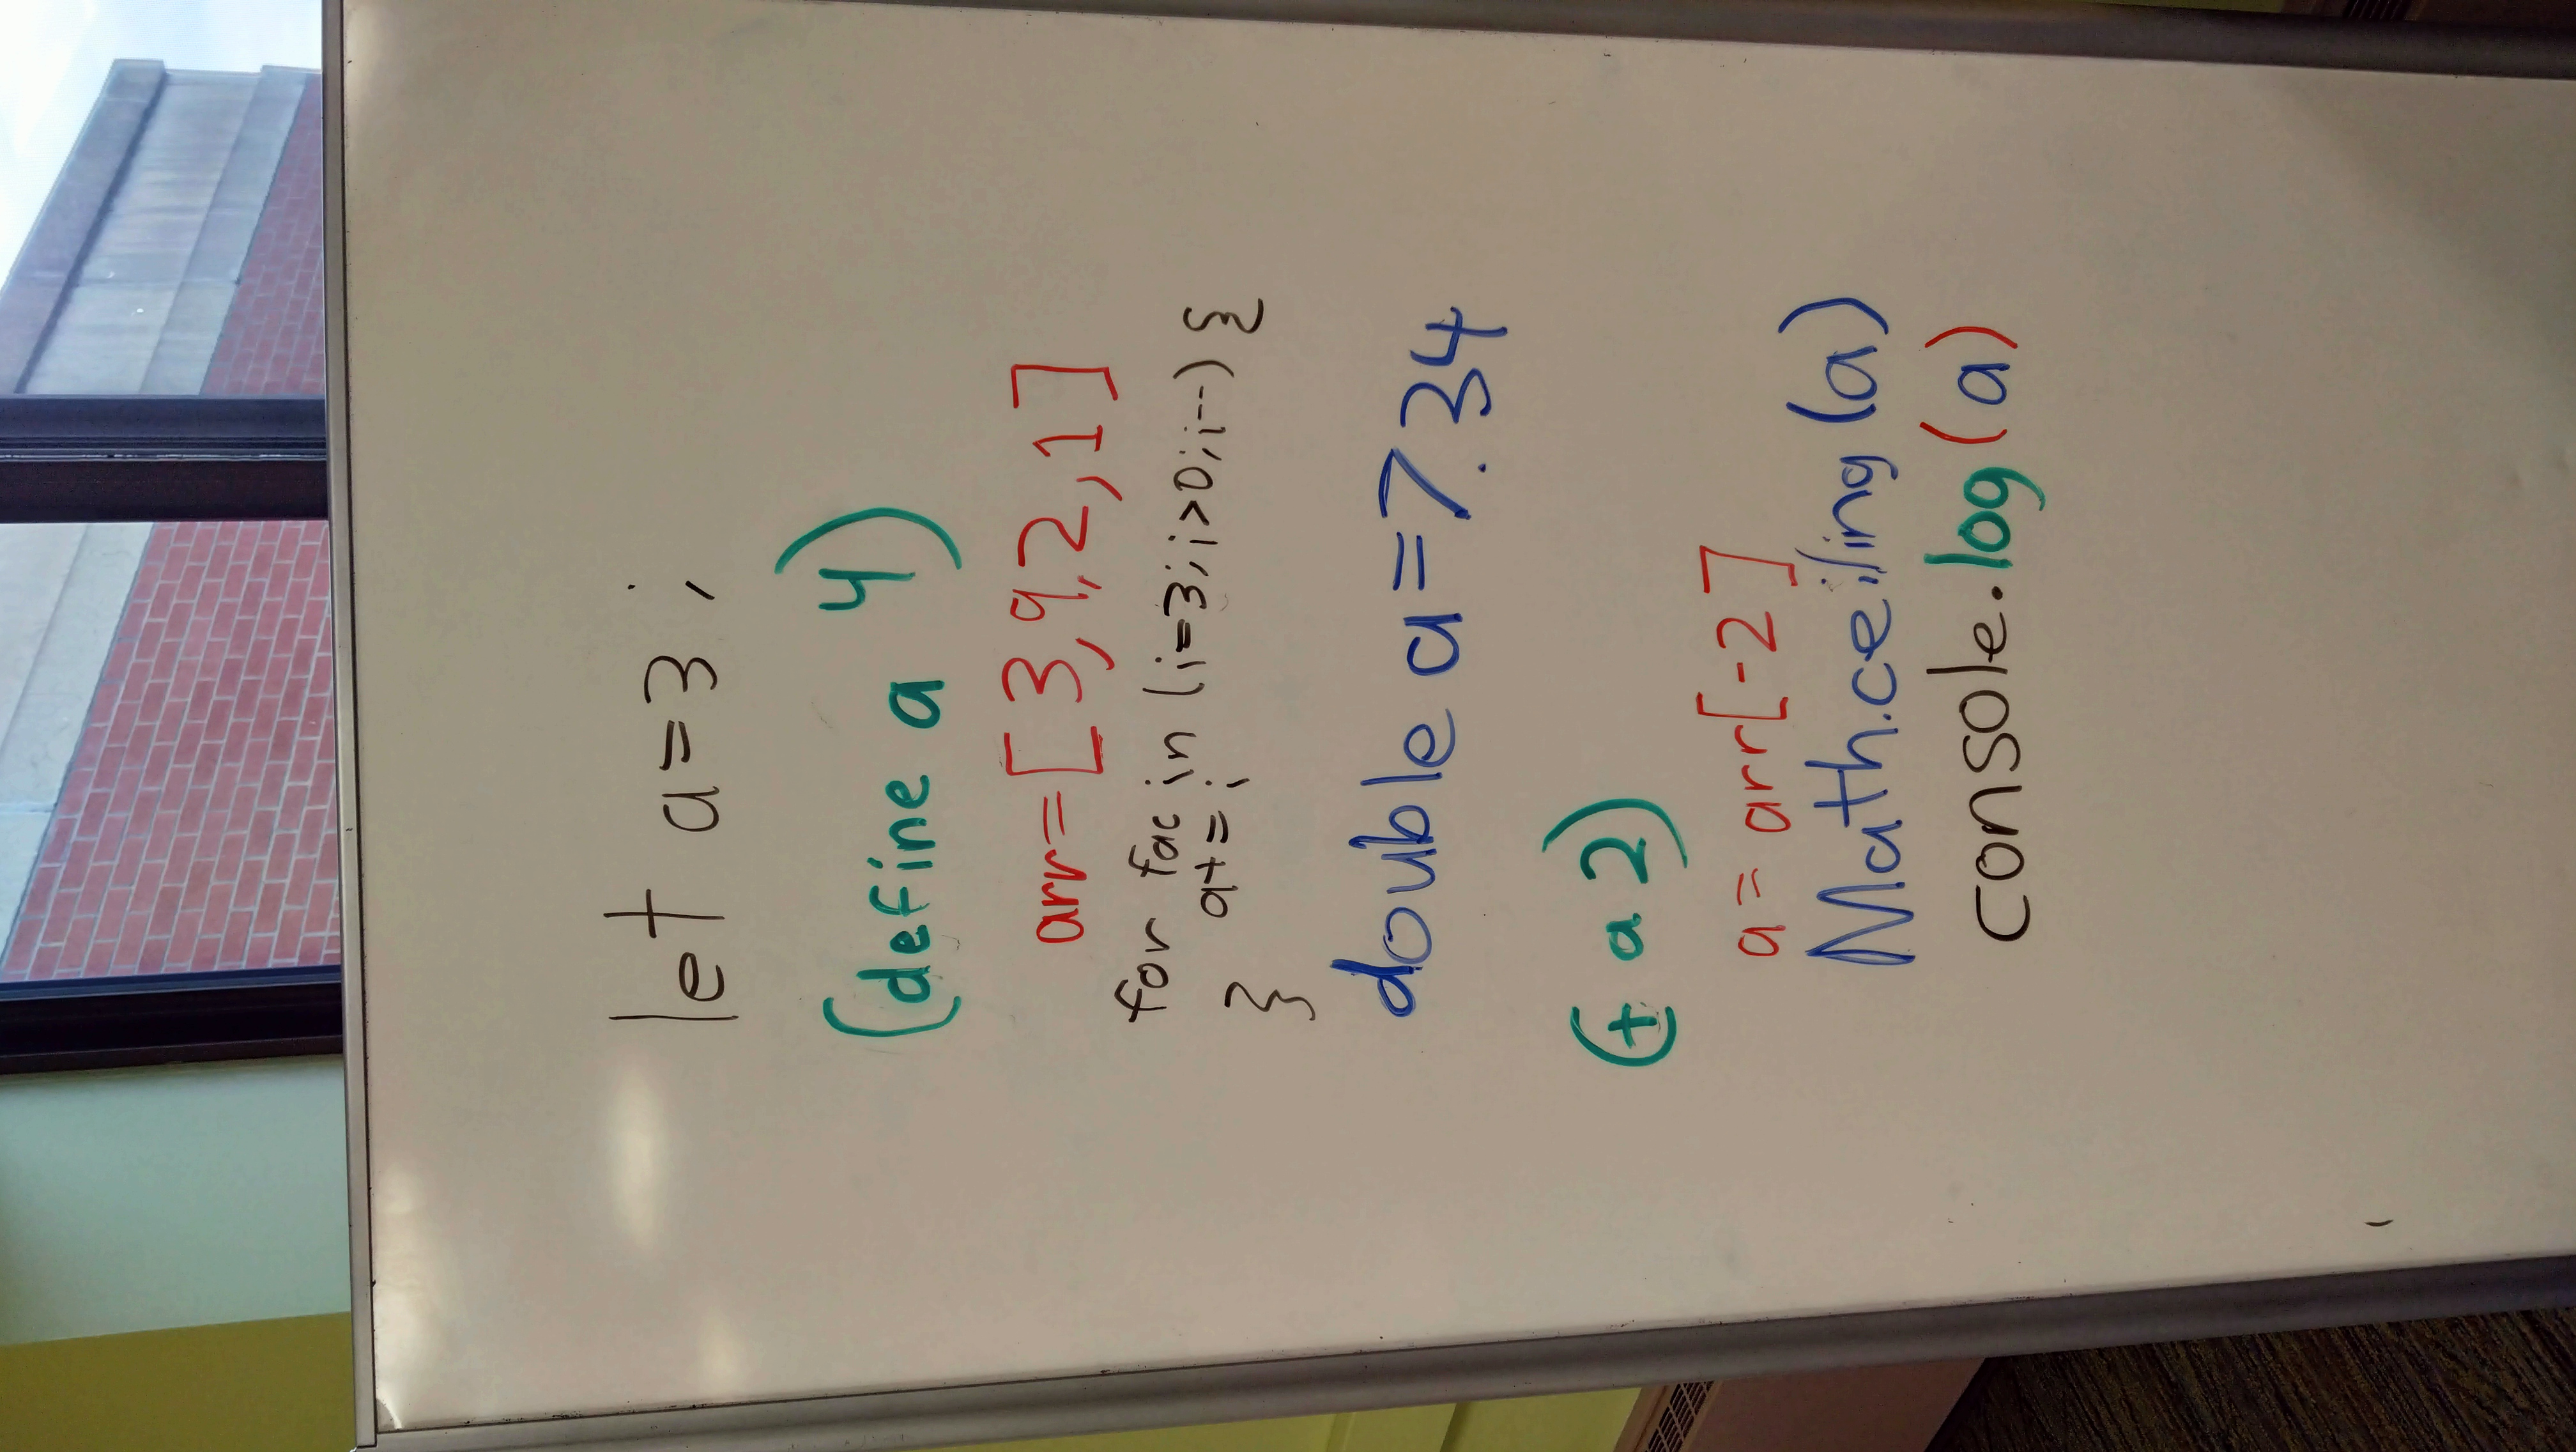 let a=3;
(define a 4)
arr=[3,9,2,1]
for fac in (i=3;i>0;i--) {
a+=i
}
double a=7.34
(+ a 2)
a= arr[-2]
Math.ceiling(a)
console.log(a)